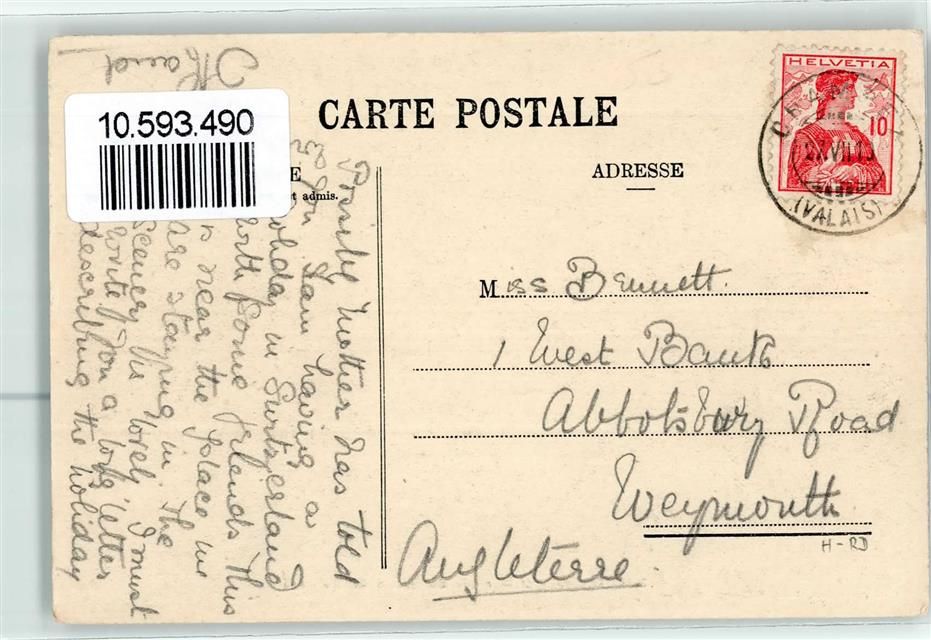 10.593.490
CARTE POSTALE
E
et admis.
ADRESSE
HELVETIA
10
(VALAIS)
Possibly Mother has told
you I am having a
holiday in Switzerland
with some friends. This
is near the place we
are staying in. The
scenery is lovely. I must
write you a long letter
describing the holiday
Miss Bennett.
1 West Bank
Abbotsbury Road
Weymouth
Angleterre.
H-RD